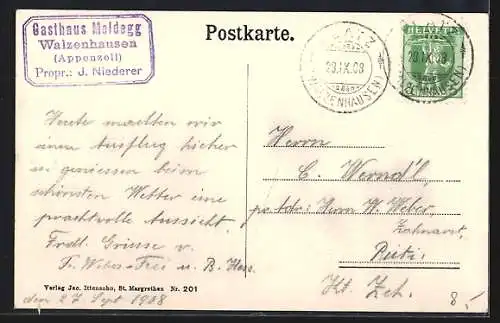 Gasthaus Meldegg
Walzenhausen
(Appenzell)
Propr.: J. Niederer
Postkarte.
PLATZ
29.IX.08
(WALZENHAUSEN)
HELVETIA
Heute machten wir
einen Ausflug hieher
u. geniessen beim
schönsten Wetter eine
prachtvolle Aussicht.
Frdl. Grüsse v.
Fr. Weber-Frei u. B. Hess.
Herrn
C. Werndl,
pr. adr: Herrn W. Weber,
Zahnarzt,
Rüti.
Kt. Zch.
Verlag Jac. Ittensohn, St. Margrethen Nr. 201
den 27 Sept 1908
8.-